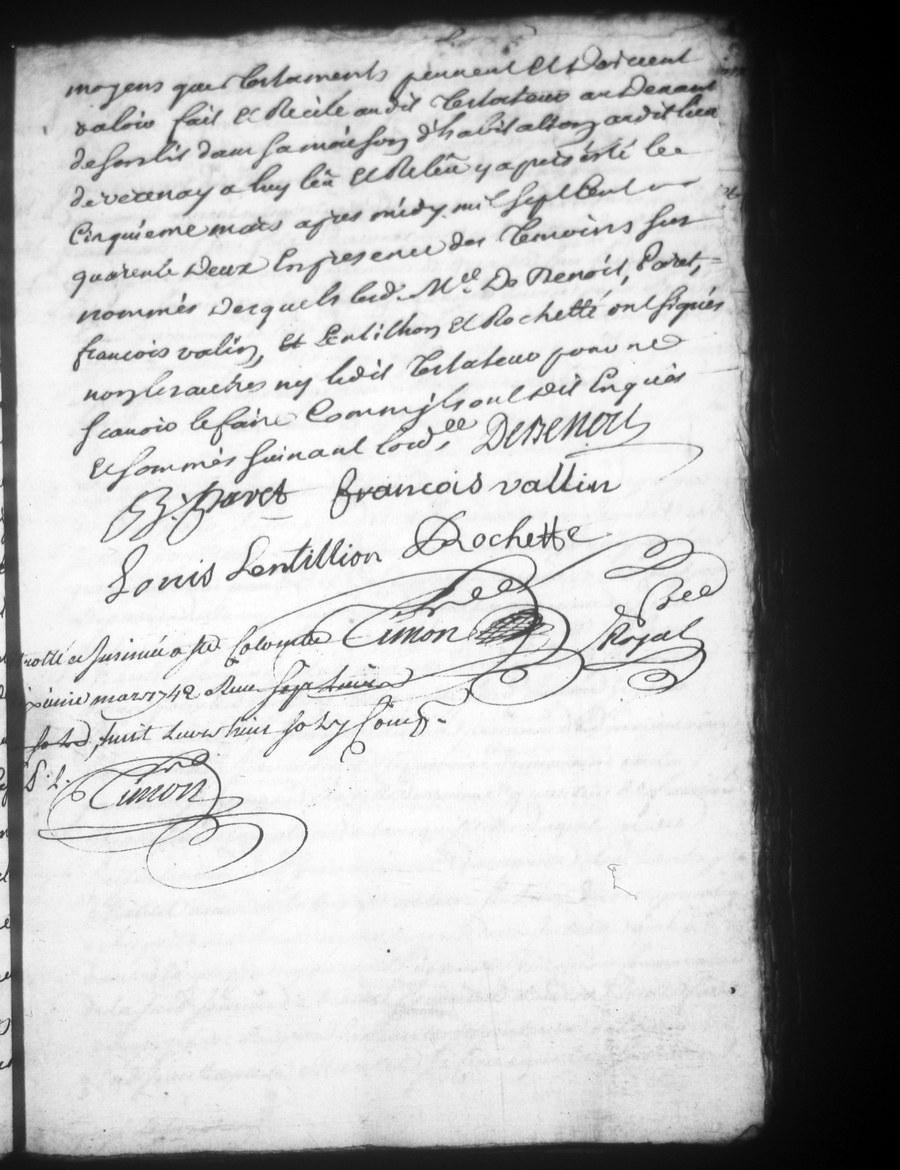 moyens que testaments peuvent et doivent
valoir fait et Recité audit testateur au devant
de son lit dans sa maison d'habitation audit lieu
de verenay a luy leu et Releu y apresté le
Cinquieme mars apres midy mil sept cent
quarente deux En presence des temoins sus
nommés desquels led. Me. De Benoit, Paret,
françois valin, et Lentilhon et Rochette ont signés
non les autres ny ledit testateur pour ne
scavoir le faire Comm'ils ont dit Enquis
et sommés suivant lord.ce DeBenoit
Paret françois vallin
Louis Lentillion Rochette
Simon Nre
Royal
a Ste Colombe
mars 1742 Receu sept livres
huit
Simon